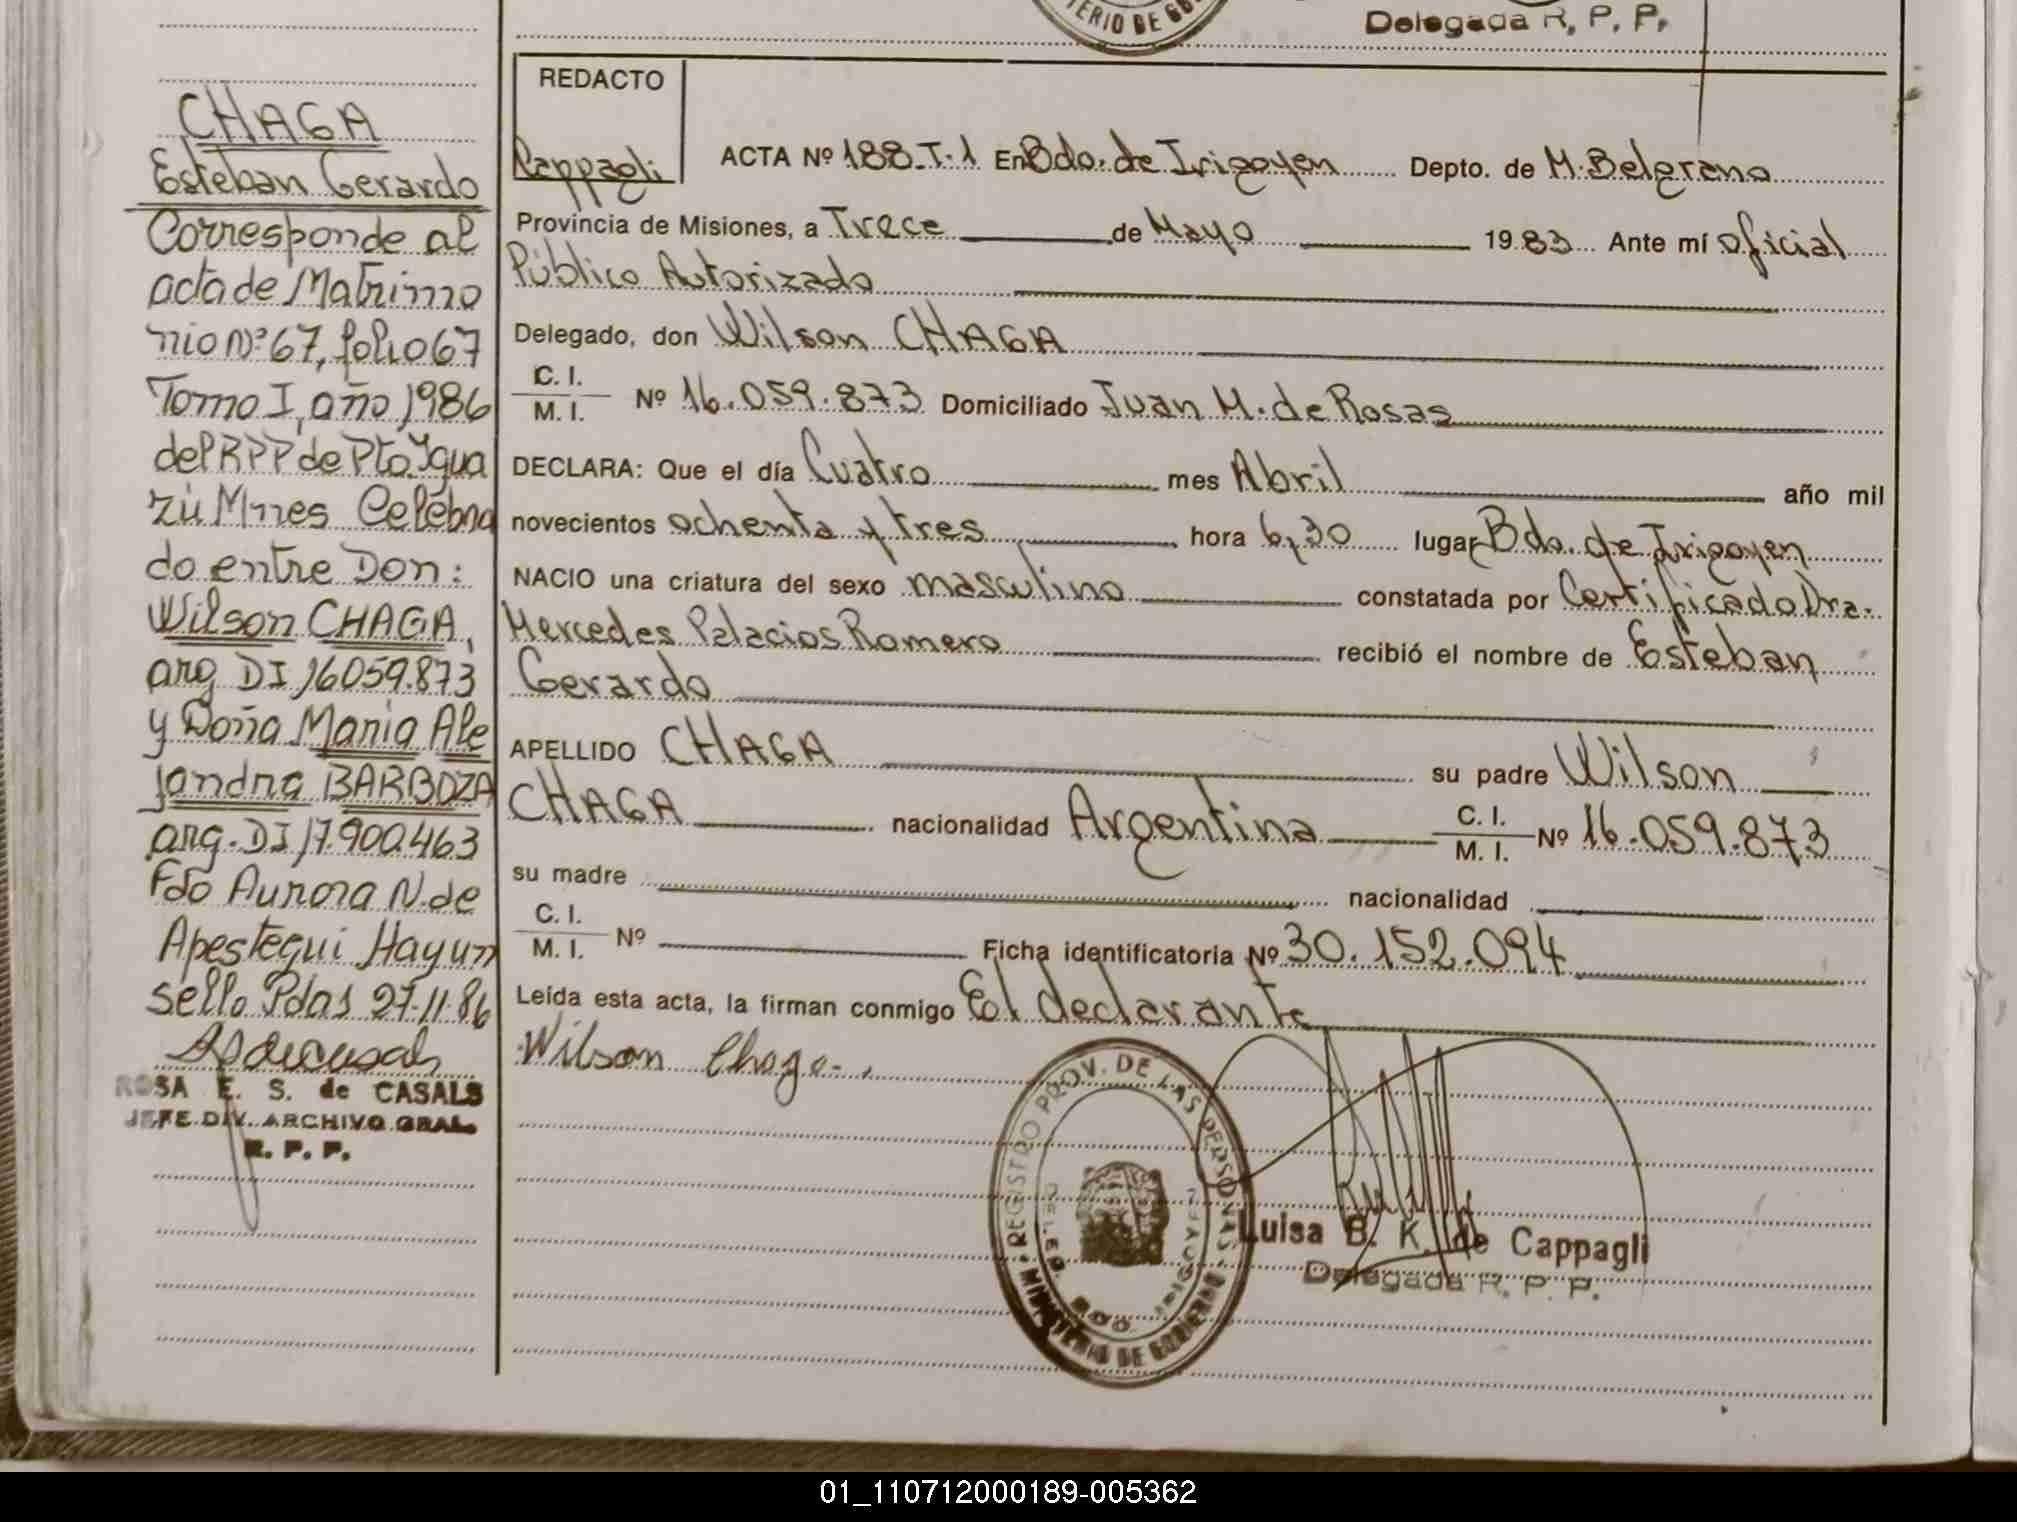 TERIO DE GOB
Delegada R. P. P.
CHAGA
Esteban Gerardo
Corresponde al
acta de Matrimo
nio Nº 67, folio 67
Tomo I, año 1986
del RPP de Pto. Igua
zú Mnes Celebra
do entre Don:
Wilson CHAGA,
arg DI 16059.873
y Doña Maria Ale
jandra BARBOZA
arg. DI 17.900.463
Fdo Aurora N. de
Apestegui Hay un
sello Pdas 27-11-86
ROSA E. S. de CASALS
JEFE DIV. ARCHIVO GRAL.
R. P. P.
REDACTO
Cappagli
ACTA Nº 188-T-1 En Bdo. de Irigoyen Depto. de M. Belgrano
Provincia de Misiones, a Trece de Mayo 1983 Ante mí oficial
Público Autorizado
Delegado, don Wilson CHAGA
C. I.
M. I. Nº 16.059.873 Domiciliado Juan M. de Rosas
DECLARA: Que el día Cuatro mes Abril año mil
novecientos ochenta y tres hora 6,30 lugar Bdo. de Irigoyen
NACIO una criatura del sexo masculino constatada por Certificado Dra.
Mercedes Palacios Romero recibió el nombre de Esteban
Gerardo
APELLIDO CHAGA su padre Wilson
CHAGA nacionalidad Argentina C. I. M. I. Nº 16.059.873
su madre nacionalidad
C. I.
M. I. Nº Ficha identificatoria Nº 30.152.094
Leída esta acta, la firman conmigo El declarante
Wilson Chaga
REGISTRO PROV. DE LAS PERSONAS
MINISTERIO DE GOBIERNO
DELEG. BDO. IRIGOYEN
Luisa B. K. de Cappagli
Delegada R. P. P.
01_110712000189-005362